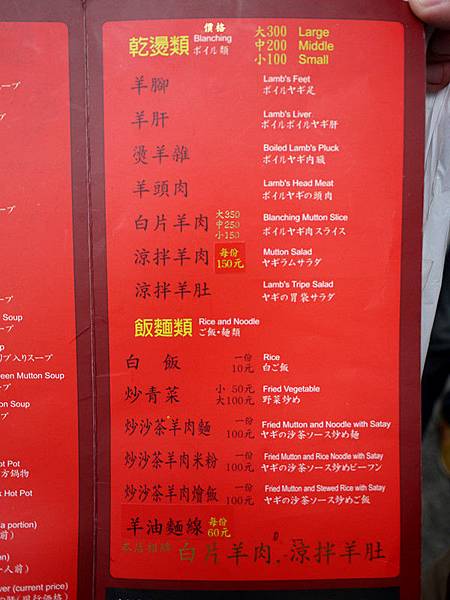 價格
乾燙類 Blanching ボイル類
大300 Large
中200 Middle
小100 Small
羊腳 Lamb's Feet
ボイルヤギ足
羊肝 Lamb's Liver
ボイルボイルヤギ肝
燙羊雜 Boiled Lamb's Pluck
ボイルヤギ内臓
羊頭肉 Lamb's Head Meat
ボイルヤギの頭肉
白片羊肉 大350 中250 小150 Blanching Mutton Slice
ボイルヤギ肉スライス
涼拌羊肉 每份150元 Mutton Salad
ヤギラムサラダ
涼拌羊肚 Lamb's Tripe Salad
ヤギの胃袋サラダ
飯麵類 Rice and Noodle
ご飯・麺類
白飯 一份10元 Rice
白ご飯
炒青菜 小50元 大100元 Fried Vegetable
野菜炒め
炒沙茶羊肉麵 一份100元 Fried Mutton and Noodle with Satay
ヤギの沙茶ソース炒め麺
炒沙茶羊肉米粉 一份100元 Fried Mutton and Rice Noodle with Satay
ヤギの沙茶ソース炒めビーフン
炒沙茶羊肉燴飯 一份100元 Fried Mutton and Stewed Rice with Satay
ヤギの沙茶ソース炒めご飯
羊油麵線 每份60元
本店招牌 白片羊肉.涼拌羊肚
ープ
ープ
ープ
ープ
Soup
スープ
リブ入りスープ
een Mutton Soup
スープ
tton Soup
スープ
Pot
方鍋物
k Hot Pot
a portion)
前)
n)
一人前)
er (current price)